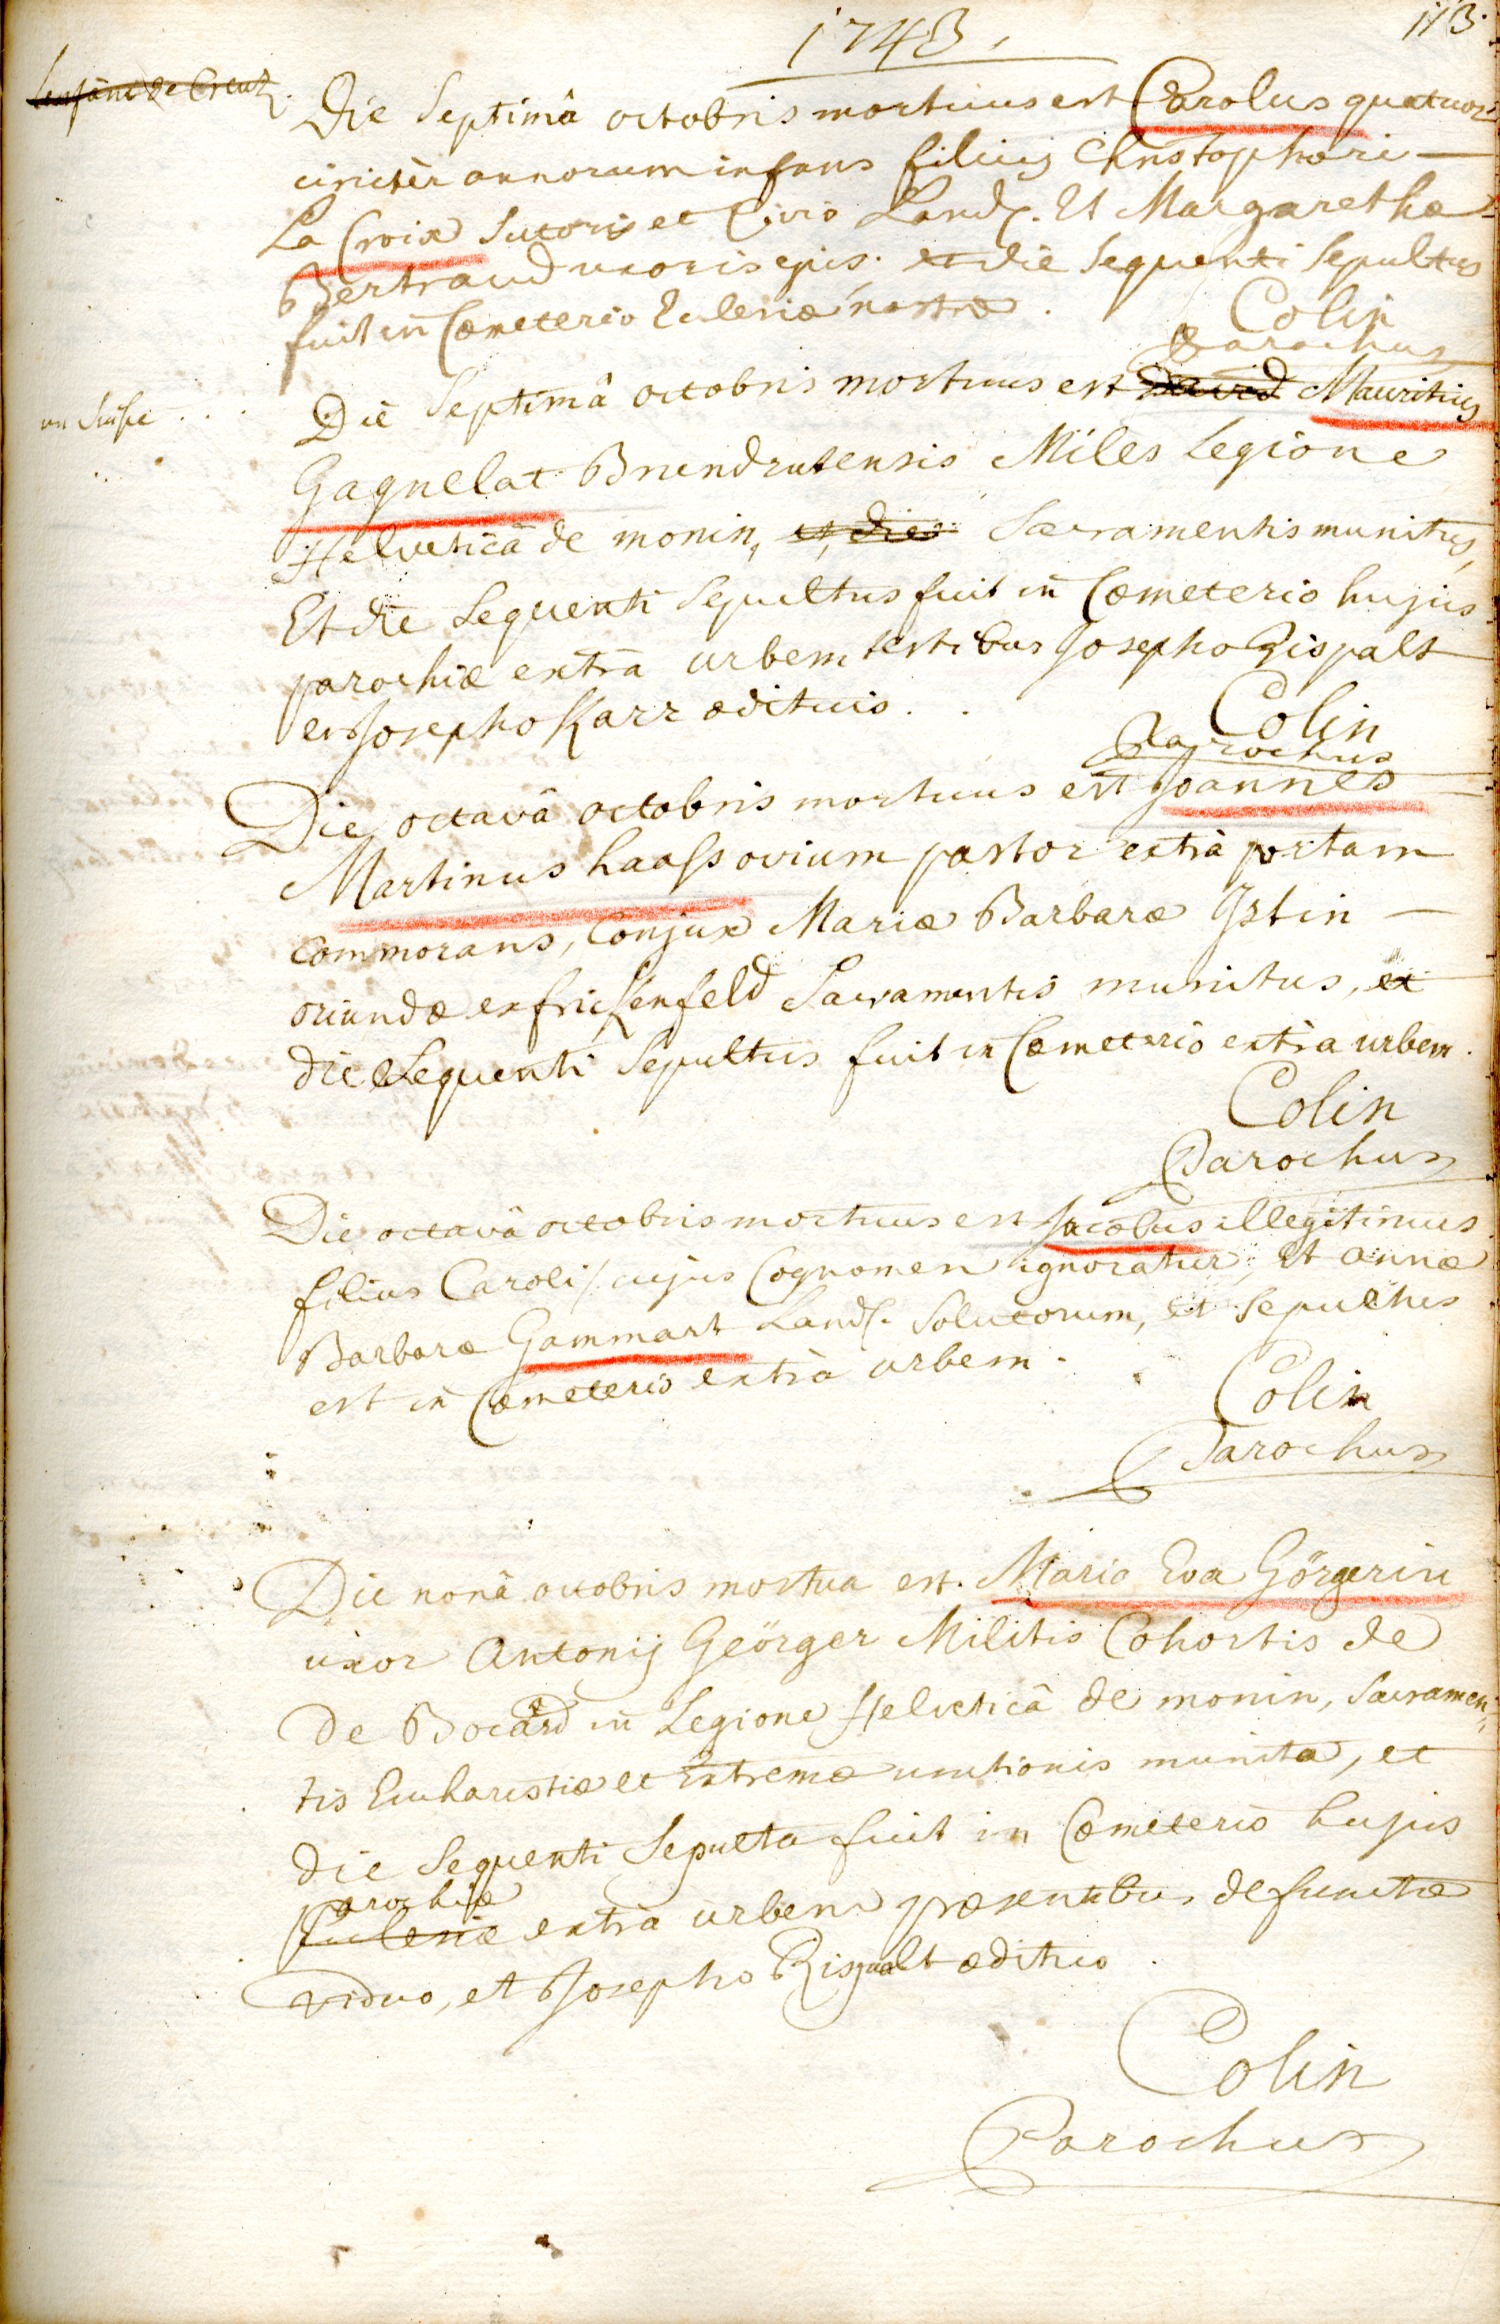 1743.
113.
l'enfant de Creutz.
Die Septimâ octobris mortuus est Carolus quatuor
circiter annorum infans filius Christophori —
La Croix Sutoris et Civis Land. Et Margarethæ
Bertrand uxoris ejus. et die sequenti Sepultus
fuit in Cœmeterio Ecclesiæ nostræ.
Colin
Parochus
un Suisse . . .
Die Septimâ octobris mortuus est David Mauritius
Gagnelat Brundrutensis Miles Legione
Helveticâ de monin, et die Sacramentis munitus,
Et die Sequenti Sepultus fuit in Cœmeterio hujus
parochiæ extrà urbem testibus Josepho Rispalt
et Josepho Karr ædituis . .
Colin
Parochus
Die octavâ octobris mortuus est Joannes
Martinus haass ovium pastor extrà portam
commorans, Conjux Mariæ Barbaræ Istin —
oriundæ ex frickenfeld Sacramentis munitus, et
die Sequenti Sepultus fuit in Cœmeterio extrà urbem.
Colin
Parochus
Die octavâ octobris mortuus est Jacobus illegitimus
filius Caroli / cujus Cognomen ignoratur, Et annæ
Barbaræ Gammart Land. Solutorum, et Sepultus
est in Cœmeterio extrà urbem.
Colin
Parochus
Die nonâ octobris mortua est. Maria Eva Görgerin
uxor Antonij Geörger Militis Cohortis de
De Bocard in Legione Helveticâ de monin, Sacramen
tis Eucharistiæ et Extremæ unctionis munita, et
die Sequenti Sepulta fuit in Cœmeterio hujus
parochiæ
Ecclesiæ extrà urbem præsentibus defunctæ
viduo, et Josepho Rispalt ædituo.
Colin
Parochus